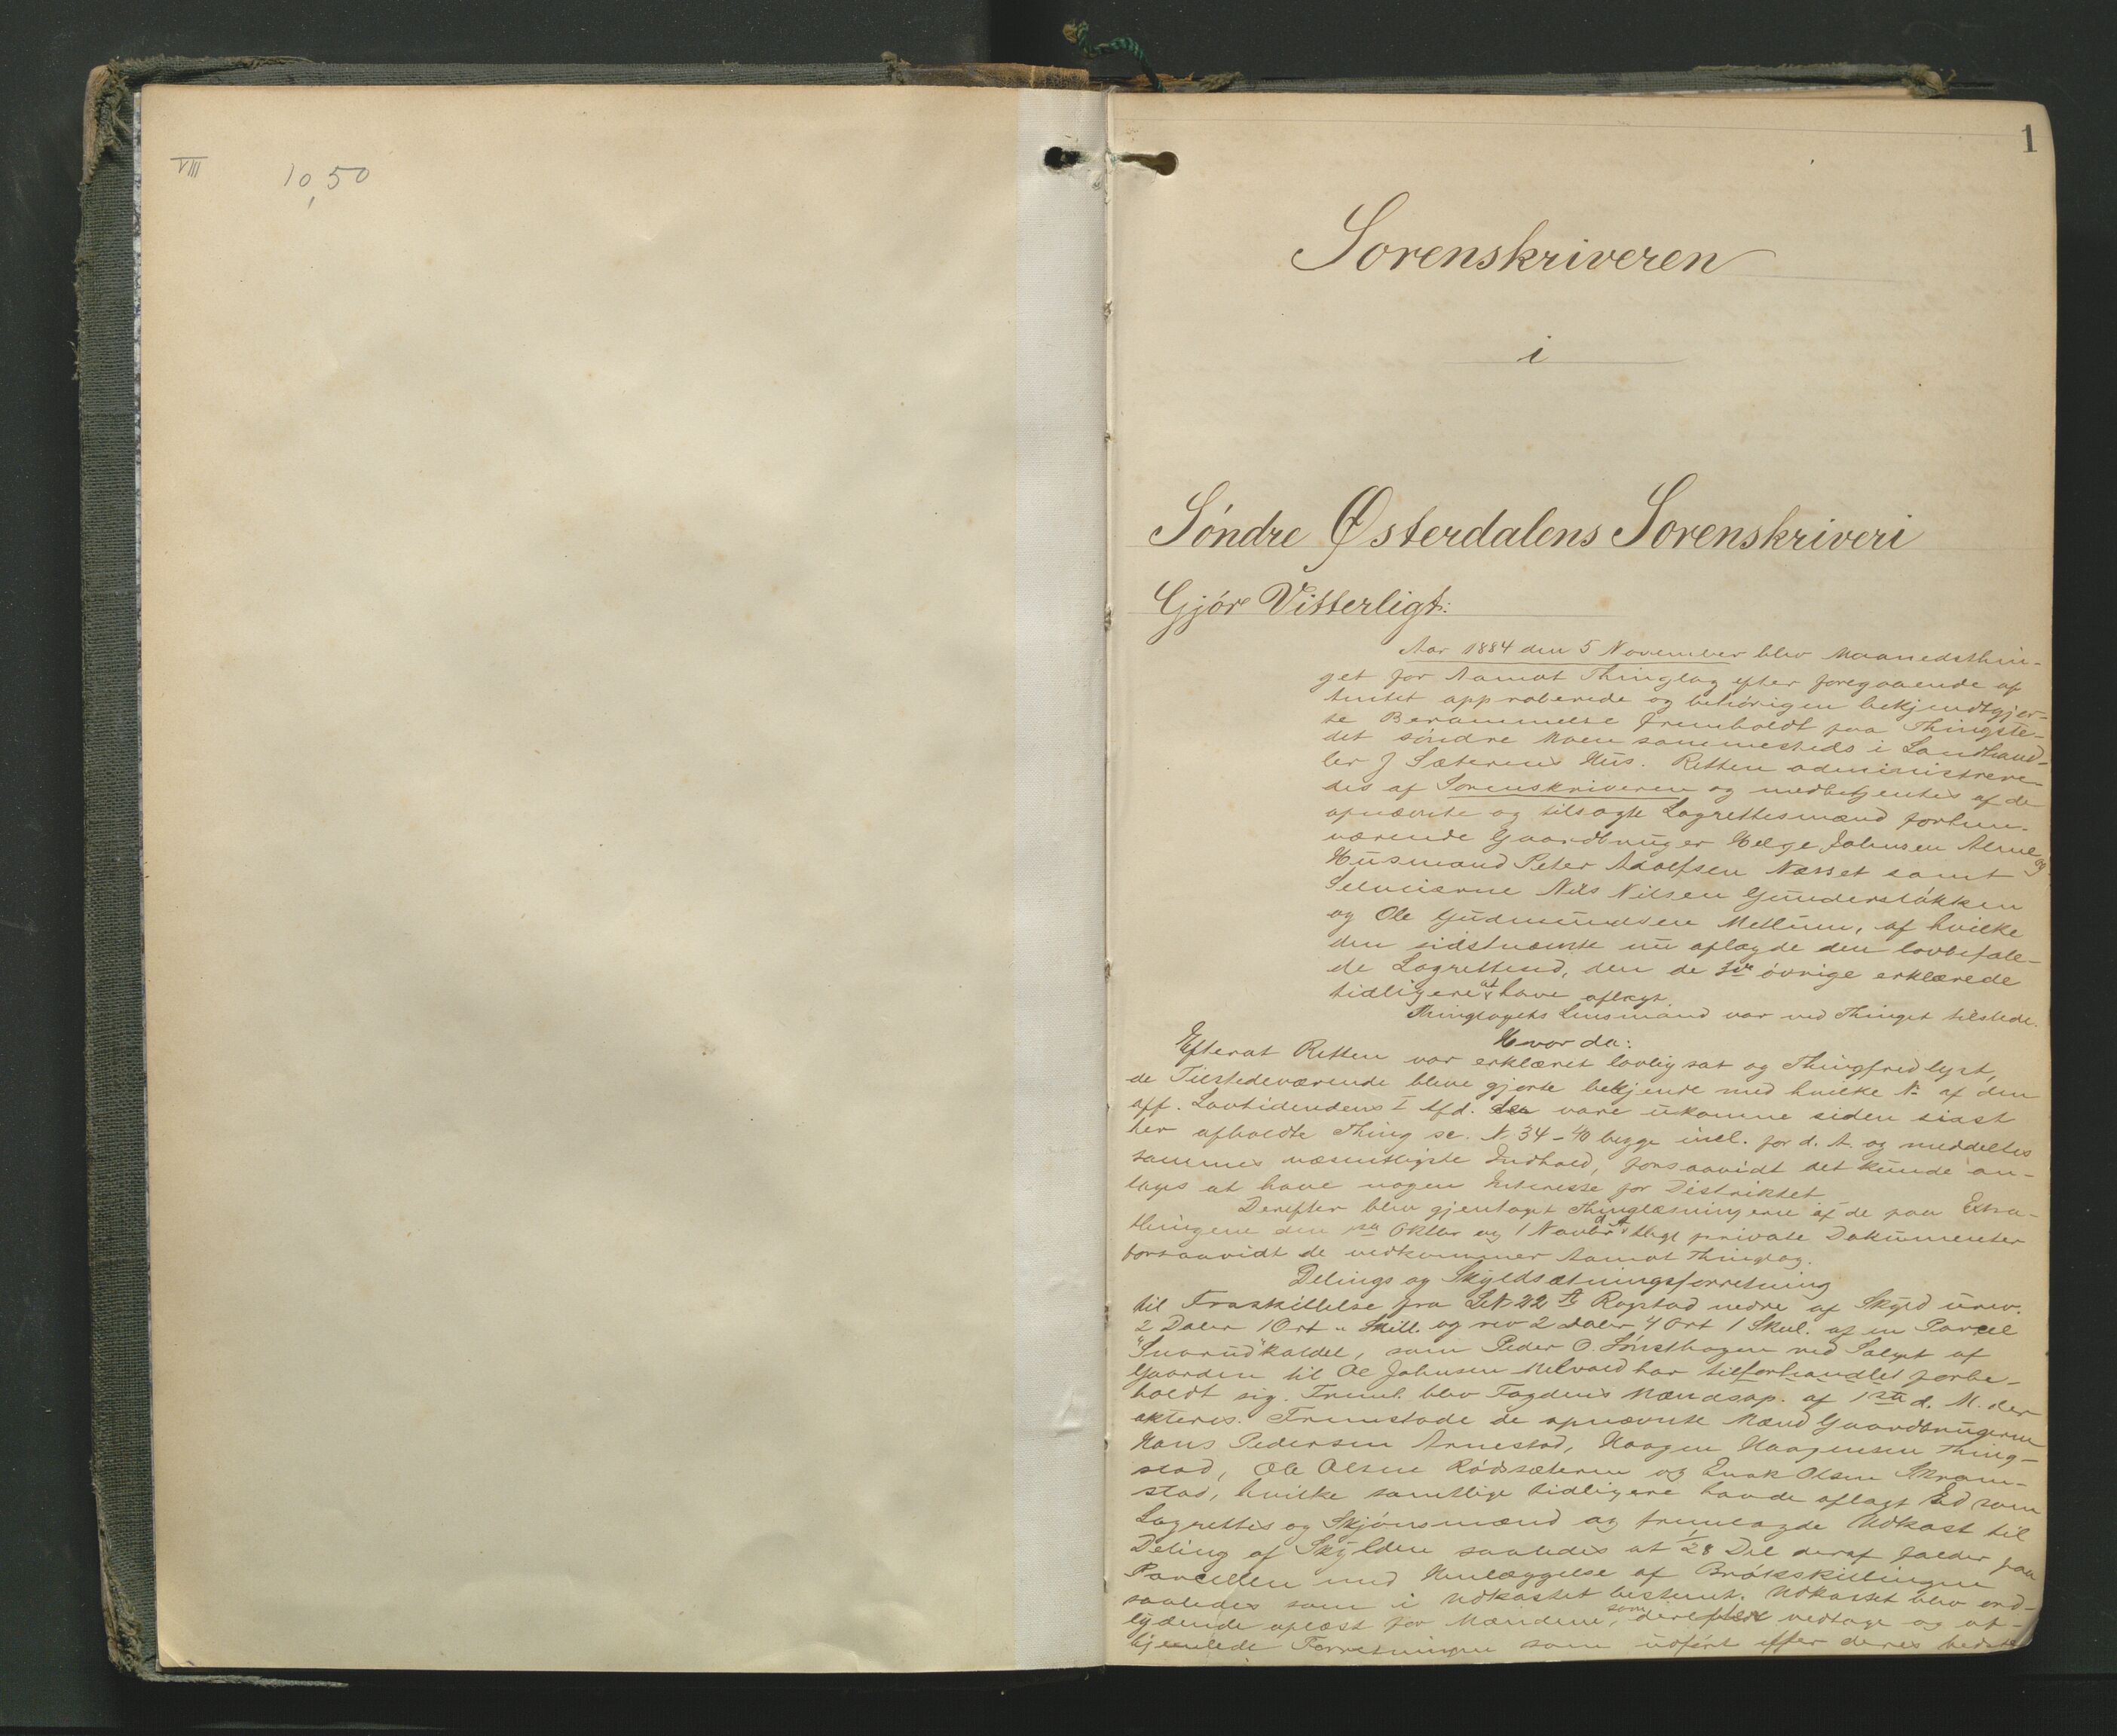 VIII
10,50
1
Sorenskriveren
i
Söndre Østerdalens Sorenskriveri
Gjör Vitterligt:
Aar 1884 den 5 November blev Maanedsthin-
get for Aamot Thinglag efter foregaaende af
Amtet approberede og behörigen bekjendtgjor-
te Berammelse fremholdt paa Thingste-
det söndre Moen sammesteds i Landhand-
ler J Sæterens Hus. Retten administrere-
des af Sorenskriveren og medbetjentes af de
opnævnte og tilsagte Lagrettesmænd forhen-
værende Gaardbruger Helge Johnsen Alme og
Husmand Peter Adolfsen Næsset samt
Selveierne Nils Nilsen Gunderslökken
og Ole Gudmundsen Metlum, af hvilke
den sidstnævnte nu aflagde den lovbefale-
de Lagrettesed, den de 3de övrige erklærede
tidligere at have aflagt.
Thinglagets Lensmand var ved Thinget tilstede.
Hvor da:
Efterat Retten var erklæret lovlig sat og Thingfred lyst,
de Tilstedeværende bleve gjorte bekjendt med hvilke No af den
off. Lovtidendens I Afd. der vare udkomne siden sidst
her afholdte Thing sc. N. 34-40 begge incl. for d. A. og meddeltes
sammes væsentligste Indhold, forsaavidt det kunde an-
tages at have nogen Interesse for Distriktet.
Derefter blev gjentaget Thinglæsningerne af de paa Extra-
thingene den 1ste Oktbr og 1 Novbr d. A. thgl private Dokumenter
forsaavidt de vedkommer Aamot Thinglag.
Delings og Skyldsætningsforretning
til Fraskillelse fra LN 22 Rogstad nedre af Skyld urev.
2 Daler 1 Ort " Skill. og rev 2 Daler 4 Ort 1 Skill. af en Parcel
"Snorud" kaldet, som Peder O. Sönsthagen ved Salget af
Gaarden til Ole Johnsen Melvold har tilforhandlet forbe-
holdt sig. Freml. blev Fogdens Mændsop. af 1ste d. M. der
akteres. Fremstode de opnævnte Mænd Gaardbrugerne
Hans Pedersen Arnestad, Haagen Haagensen Thing-
stad, Ole Olsen Rödsæteren og Enok Olsen Skram-
stad, hvilke samtlige tidligere havde aflagt Ed som
Lagrettes og Skjönsmænd og fremlagde Udkast til
Deling af Skylden saaledes at 1/28 Del deraf falder paa
Parcellen med Henlæggelse af Brökskillingen
saaledes som i Udkastet bestemt. Udkastet blev ord-
lydende oplæst for Mændene, som derefter vedtoge og af-
hjemlede Forretningen som udfört efter deres bedste